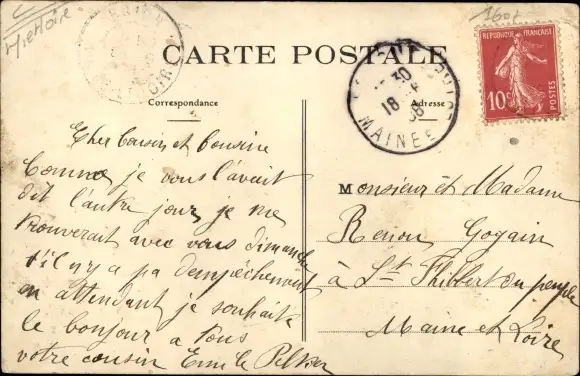 CARTE POSTALE
Correspondance
Adresse
REPUBLIQUE FRANÇAISE
10c
POSTES
160f
30
18
08
MAINE &
Cher Cousin et Cousine
Comme je vous l'avait
dit l'autre jour je me
trouverait avec vous dimanche
s'il n'y a pa d'empéchement
en attendant je souhaite
le bonjour a tous
votre cousin Emile Peltier
Monsieur et Madame
Renou Gogain
à St Philbert du peuple
Maine et Loire